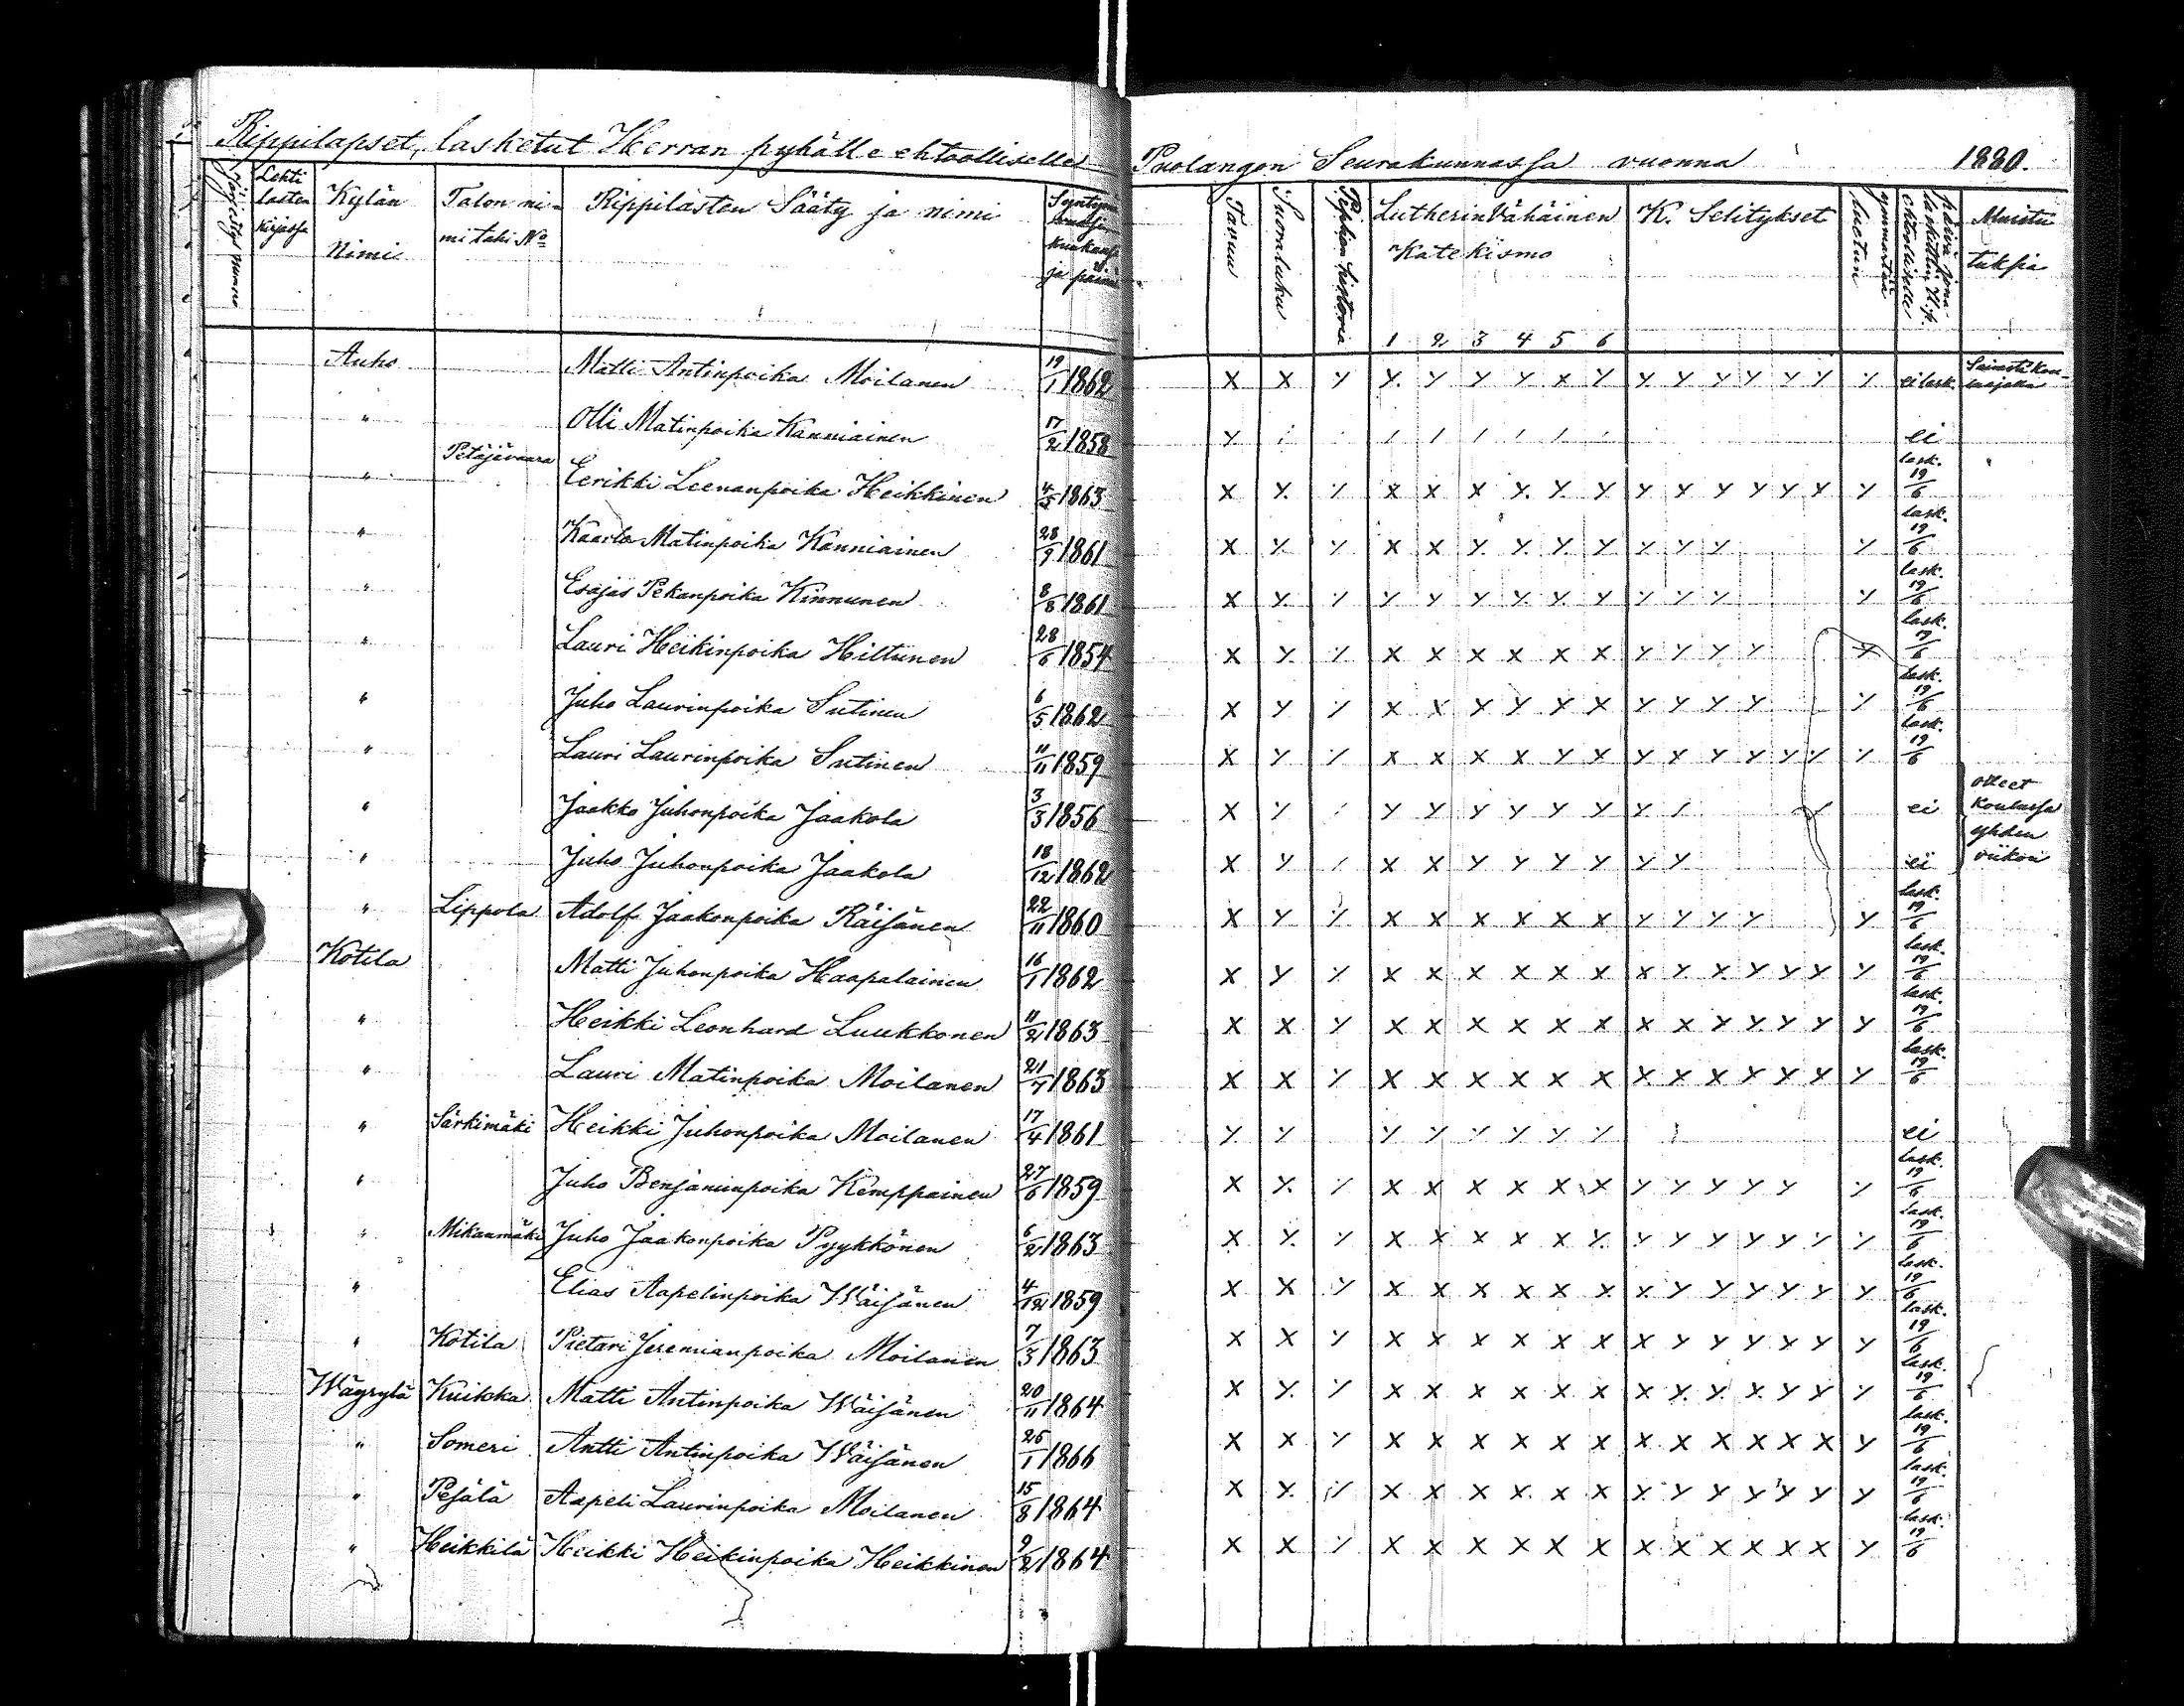 Rippilapset, lasketut Herran pyhälle ehtoolliselle Puolangon Seurakunnassa vuonna 1880.
Järjestys numero
Lehti lasten kirjassa
Kylän Nimi
Talon nimi taki No
Rippilasten Sääty ja nimi
ja päivä
Tavuu
Suoraluku
Piplian historia
Lutherin Vähäinen Katekismo
1 2 3 4 5 6
K. Selitykset
ymmärtää luetun
ehtoolliselle
Muistutuksia
Auho Matti Antinpoika Moilanen 19/1 1862 X X Y Y Y Y Y X Y Y Y Y Y Y Y Y ei lask.
" Olli Matinpoika Kanniainen 17/2 1858 Y ei
" Petäjävaara Eerikki Leenanpoika Heikkinen 4/5 1863 X Y Y X X X Y Y Y Y Y Y Y Y Y Y lask. 19/6
" Kaarlo Matinpoika Kanniainen 28/9 1861 X Y Y X X Y Y Y Y Y Y Y Y lask. 19/6
" Esajas Pekanpoika Kinnunen 8/8 1861 X Y Y Y Y Y Y Y Y Y Y Y Y lask. 19/6
" Lauri Heikinpoika Hiltunen 28/6 1854 X Y Y X X X X X X Y Y Y Y Y lask. 19/6
" Juho Laurinpoika Sutinen 6/5 1862 X Y Y X X Y Y X X Y Y Y Y Y lask. 19/6
" Lauri Laurinpoika Sutinen 11/11 1859 X Y Y X X X X Y X Y Y Y Y Y Y Y lask. 19/6
" Jaakko Juhonpoika Jaakola 3/3 1856 X Y Y Y Y Y Y Y Y ei olleet koulussa
" Juho Juhonpoika Jaakola 18/12 1862 X Y X X Y Y Y Y Y Y ei yhden viikon
" Lippola Adolf Jaakonpoika Räisänen 22/11 1860 X Y Y X X X X X X Y Y Y Y Y lask. 19/6
Kotila Matti Juhonpoika Haapalainen 16/1 1862 X Y Y X X X X X X X Y Y Y Y Y Y lask. 19/6
" Heikki Leonhard Luukkonen 11/2 1863 X X Y X X X X X X X X Y Y Y Y Y lask. 19/6
" Lauri Matinpoika Moilanen 21/7 1863 X X Y X X X X X X X X X X X Y Y lask. 19/6
" Särkimäki Heikki Juhonpoika Moilanen 17/4 1861 Y Y Y Y Y Y Y Y ei
" Juho Benjaminpoika Kemppainen 27/6 1859 X Y Y X X X X X X Y Y Y Y Y Y lask. 19/6
" Mikanmäki Juho Jaakonpoika Pyykkönen 6/2 1863 X Y Y X X X X X Y Y Y Y Y Y Y Y lask. 19/6
" Elias Aapelinpoika Wäisänen 4/12 1859 X X Y X X X X X X X Y Y Y Y Y Y lask. 19/6
" Kotila Pietari Jeremianpoika Moilanen 7/3 1863 X X Y X X X X X X X Y Y Y Y Y Y lask. 19/6
Wäyrylä Kuikka Matti Antinpoika Wäisänen 20/11 1864 X Y Y X X X X X X X Y Y X Y Y Y lask. 19/6
" Someri Antti Antinpoika Wäisänen 25/1 1866 X X Y X X X X X X X X X X X X Y lask. 19/6
" Pesälä Aapeli Laurinpoika Moilanen 15/8 1864 X Y Y X X X X X X X Y Y Y Y Y Y lask. 19/6
" Heikkilä Heikki Heikinpoika Heikkinen 9/2 1864 X X Y X X X X X X X X X X X X Y lask. 19/6